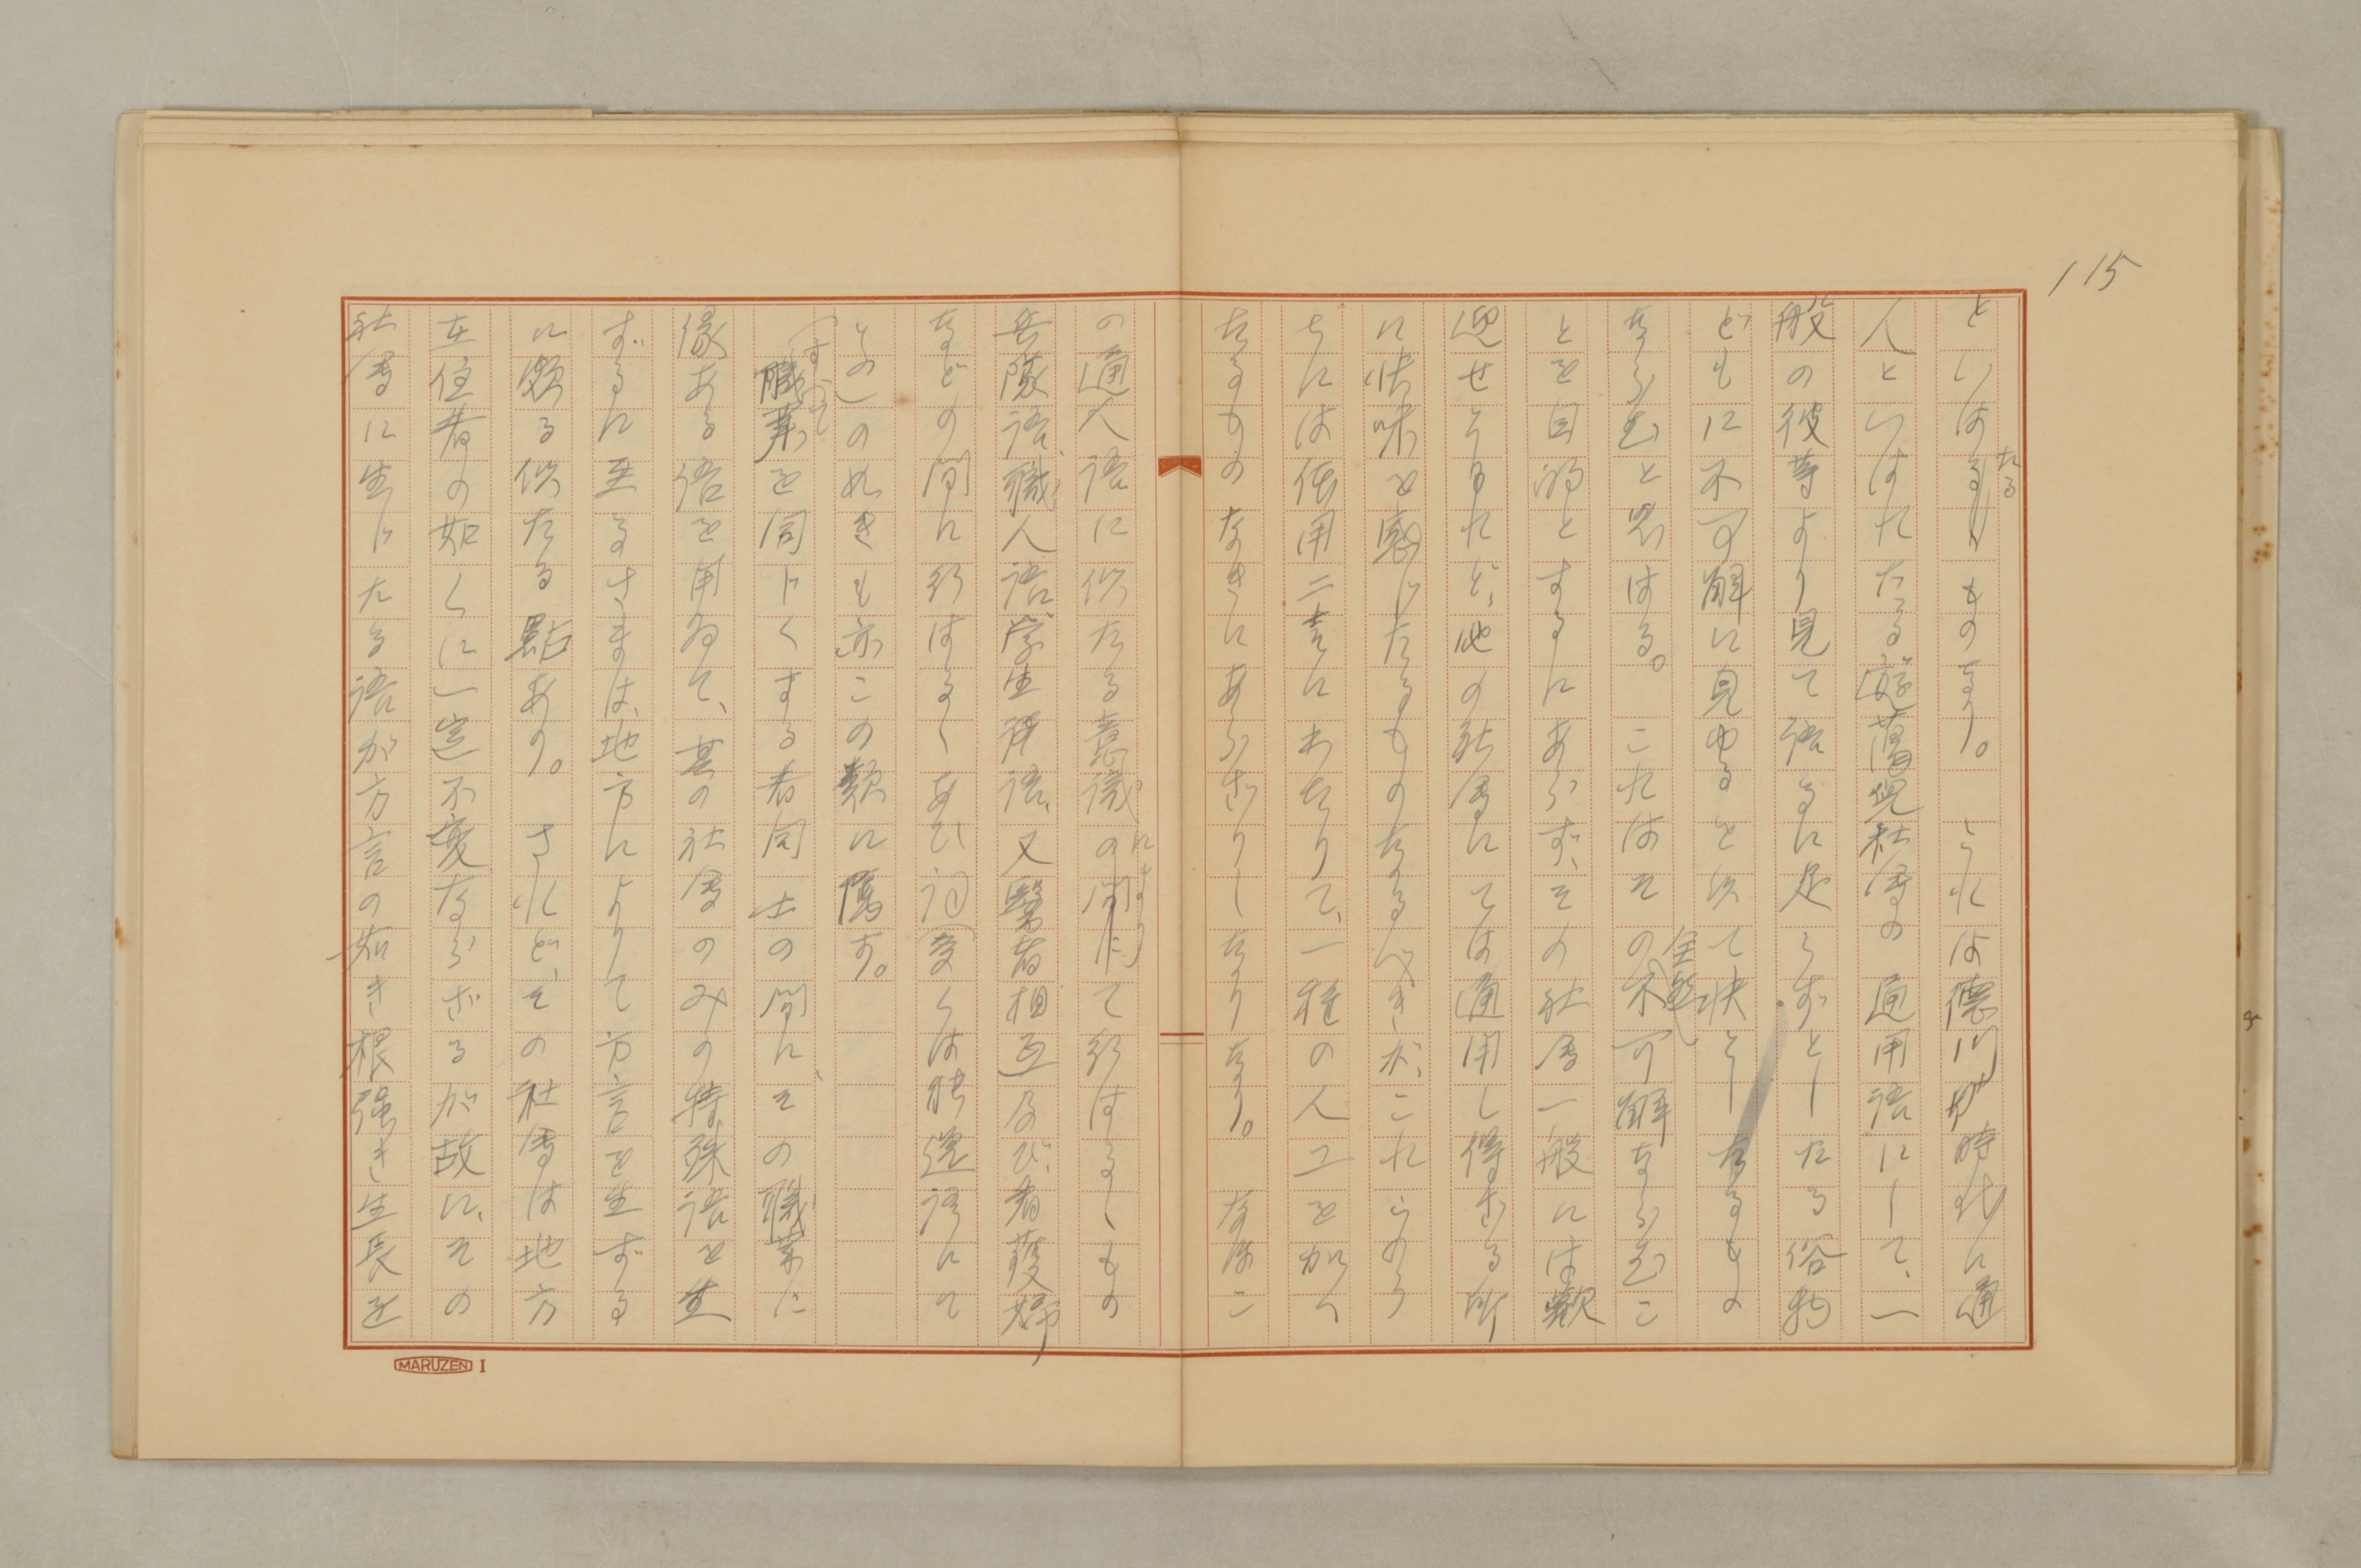 115
といはるゝたるものなり。これは德川時代に通
人といはれたる遊蕩兒社會の通用語にして、一
般の彼等より見て語るに足らずとしたる俗物
どもに不可解に見ゆるを以て快としたるもの
ならむと思はる。これはその全然不可解ならむこ
とを目的とするにあらず、その社會一般には歡
迎せられたれど、他の社會にては通用し得ざる所
に快味を感じたるものなるべきが、これらのう
ちには借用二言にわたりて、一種の人工を加へ
たるものなきにあらざりしなりなり。なほこ
の通人語に似たる意識の間にによりて行はるゝもの
兵隊語、職人語、学生語、又醫者相互及び看護婦
などの間に行はるゝあひ詞(多くは外國語にて
との)の如きも亦この類に屬す。
すべて職業を同じくする者同士の間に、その職業に
緣ある語を用ゐて、其の社會のみの特殊語を生
ずるに至るさまは、地方によりて方言を生ずる
に頗る似たる點あり。されど、その社會は地方
在住者の如くに一定不變ならざるが故に、その
社會に生じたる語が方言の如き根强き生長を
MARUZEN I